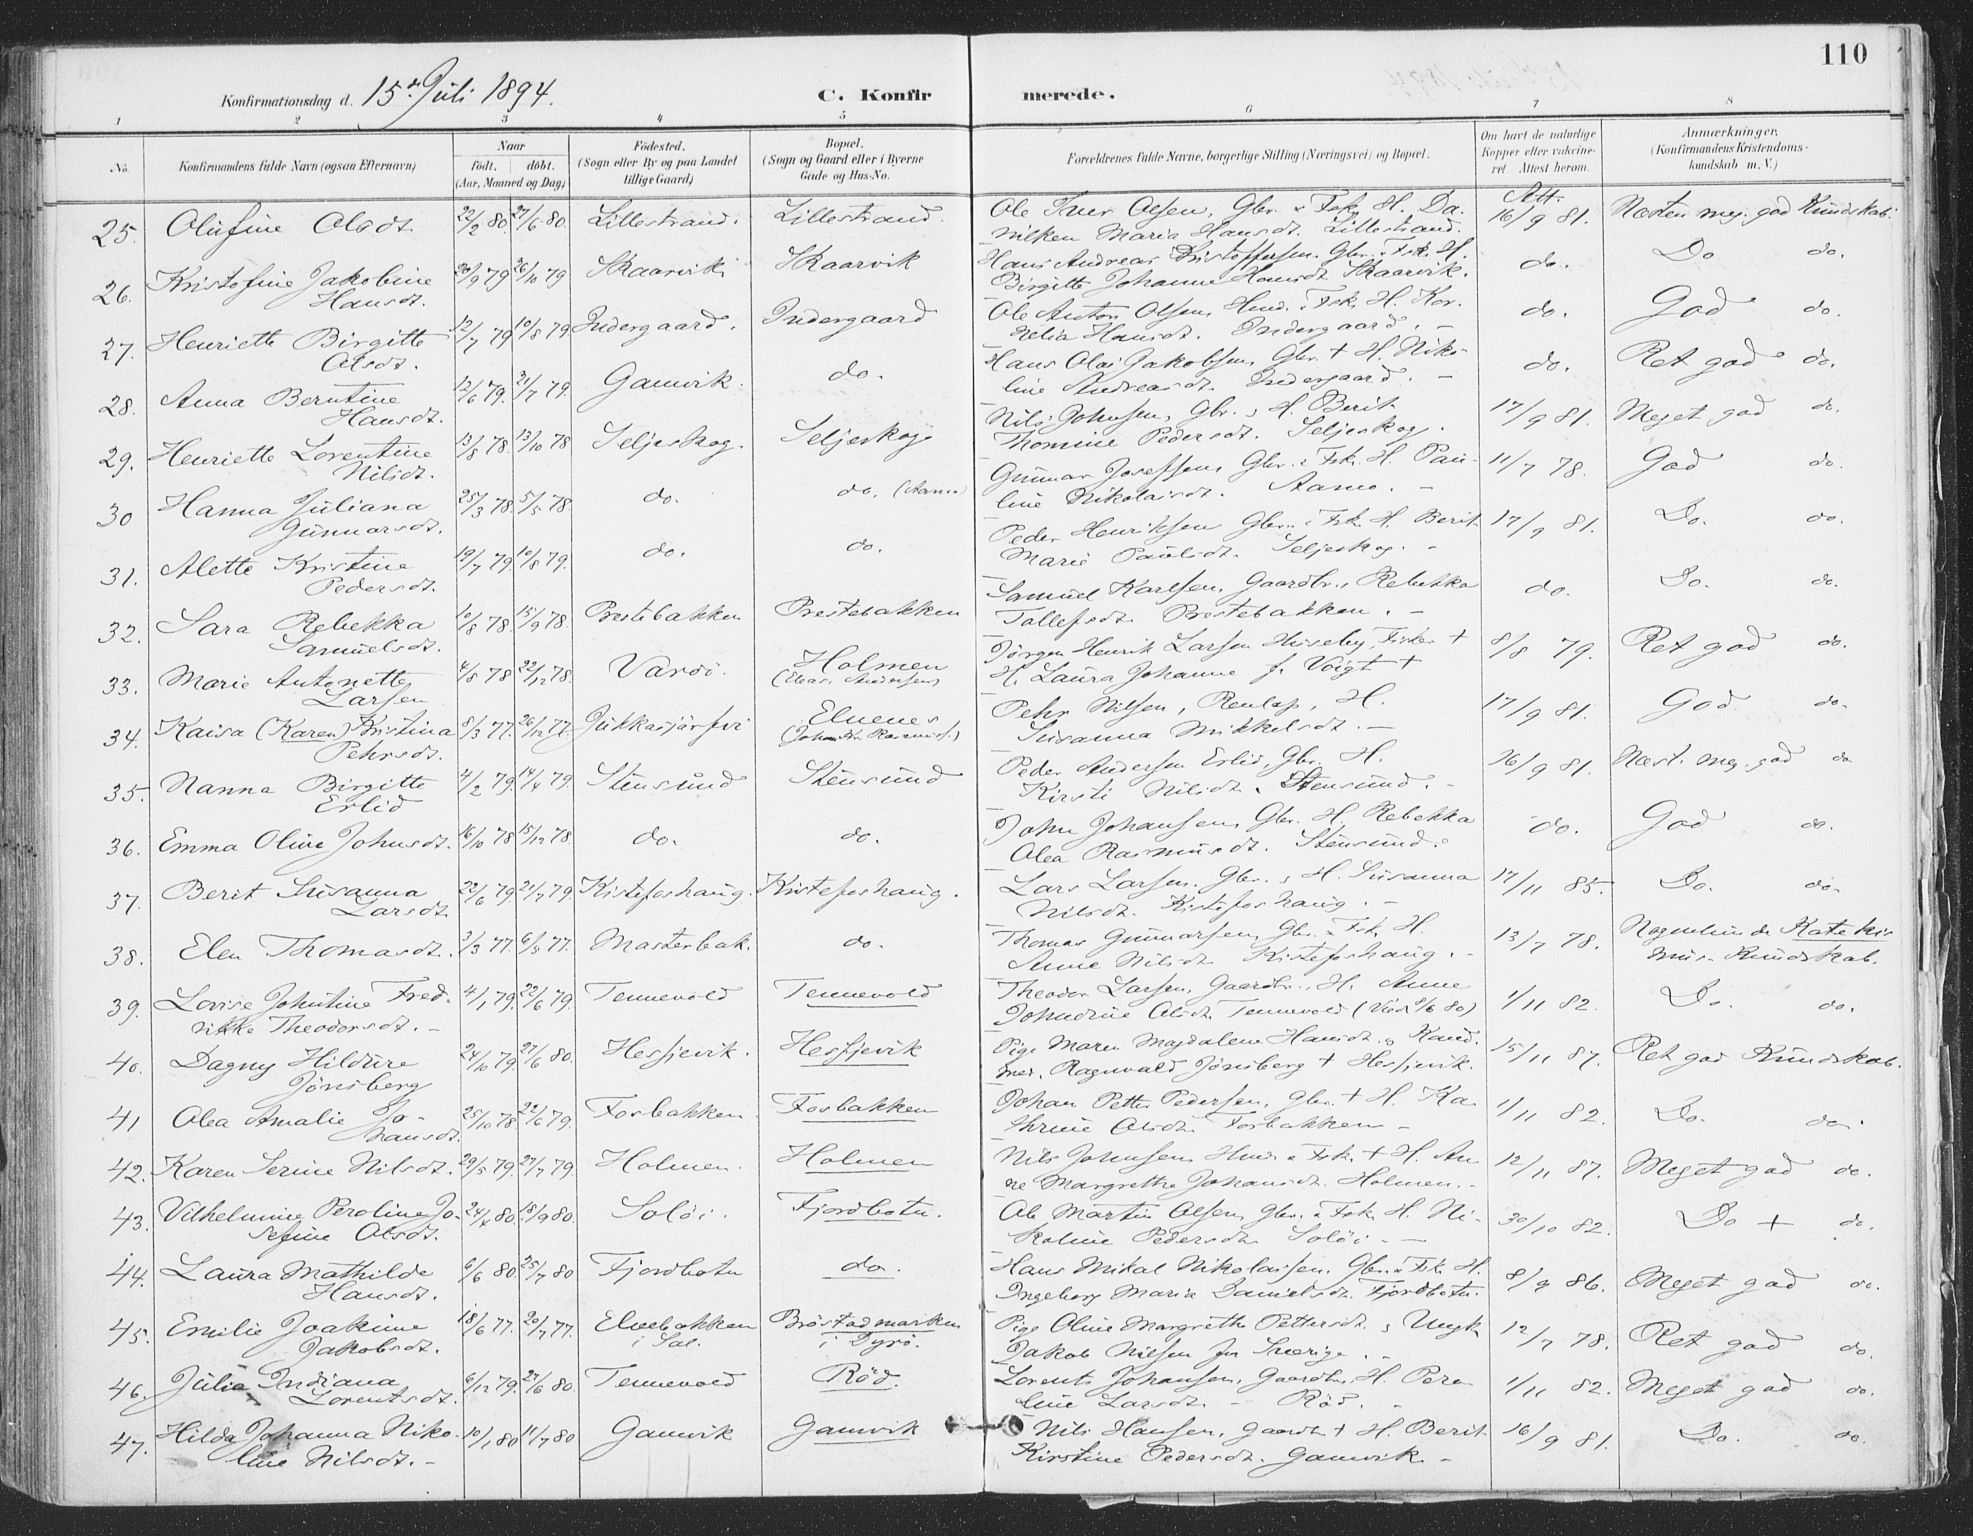 110
Konfirmationsdag d. 15de Juli 1894.
C. Konfirmerede.
1 2 3 4 5 6 7 8
No. Konfirmandens fulde Navn (ogsaa Efternavn) Naar født. døbt. (Aar, Maaned og Dag) Fødested. (Sogn eller By og paa Landet tillige Gaard) Bopæl. (Sogn og Gaard eller i Byerne Gade og Hus-No. Forældrenes fulde Navne, borgerlige Stilling (Næringsvei) og Bopæl. Om havt de naturlige Kopper eller vaccineret. Attest herom. Anmærkninger. (Konfirmandens Kristendomskundskab m. V.)
25. Olufine Olsdt. 22/2 80 27/6 80. Lillestrand. Lillestrand. Ole Iver Olsen, Gbr. & Fsk. H. Da- Att. 16/9 81. Næsten meg. god Kundskab.
nilken Maria Hansdt. Lillestrand.
26. Kristofine Jakobine 20/9 79 26/10 79 Skaarvik Skaarvik Hans Andreas Kristoffersen Gbr. & Fsk. H. do. Do do.
Hansdt. Birgitte Johanne Hansdt. Skaarvik.
27. Henriette Birgitte 12/7 79 10/8 79 Indergaard. Indergaard Ole Anton Olsen, Hmd. & Fsk. H. Kor- do. God do.
Olsdt. nelia Hansdt. Indergaard. -
28. Anna Berntine 12/6 79. 21/7 79. Gamvik. do. Hans Olai Jakobsen, Gbr. + H. Niko- do. Ret god do.
Hansdt. line Andreasdt. Indergaard. -
29. Henriette Lorentine 13/8 78. 13/10 78 Seljeskog. Seljeskog Nils Johnsen, Gbr., H. Berit 17/9 81. Meget god do.
Nilsdt. Thomine Pedersdt. Seljeskog.
30 Hanna Juliana 25/3 78. 5/5 78. do. do. (Aamo) Gunnar Josefsen, Gbr. & Fsk. H. Pau- 11/7 78. God do.
Gunnarsdt. line Nikolaisdt. Aamo. -
31. Alette Kristine 19/7 79. 10/8 79. do. do. Peder Henriksen Gbr. & Fsk. H. Berit 17/9 81. Do. do.
Pedersdt. Marie Paulsdt. Seljeskog. -
32. Sara Rebekka 10/8 78. 15/9 78. Prestebakken Prestebakken Samuel Karlsen, Gaardbr., Rebekka do. Do. do.
Samuelsdt. Tollefsdt. Prestebakken. -
33. Marie Antonette 4/8 78 22/12 78. Vardö. Holmen Jörgen Henrik Larsen Huseby, Fisker + 8/8 79. Ret god do.
Larsen (Elias Andersen) H. Laura Johanne f. Voigt +
34. Kaisa (Karen) Kristina 8/3 77. 26/12 77. Jukkasjärfvi Elvenes Pehr Nilsen, Renlap, H. 17/9 81. God do.
Pehrsdt. Susanna Mikkelsdt. -
35. Nanna Birgitte 4/2 79. 14/4 79. Stensund Stensund Peder Andersen Erlid, Gbr. H. 26/9 81. Næst. meg. god do
Erlid Kirsti Nilsdt. Stensund. -
36. Emma Oline Johnsdt. 16/10 78. 15/12 78 do. do. John Johansen, Gbr. H. Rebekka do. God do.
Olea Rasmusdt. Stensund.
37. Berit Susanna 22/6 79. 21/7 79. Kistefoshaug. Kistefoshaug. Lars Larsen, Gbr., H. Susanna 17/11 85. Do. do.
Larsdt. Nilsdt. Kistefoshaug. -
38. Elen Thomasdt. 3/3 77. 6/5 77. Masterbak. do. Thomas Gunnarsen, Gbr. & Fsk. H. 13/7 78. Nogenlunde Katekis-
Anne Nilsdt. Kistefoshaug. - mus-Kundskab.
39. Lovise Johntine Fred- 4/1 79. 22/6 79. Tennevold Tennevold Theodor Larsen, Gaardbr., H. Anne 1/11 82. Do. do.
rikke Theodorsdt. - Johndine Olsdt. Tennevold (Viedt 8/6 80)
40. Dagny Hildure 24/10 79. 27/6 80. Hesjevik. Hesjevik Pige Maren Magdalene Hansdt. & Kand. 15/11 87. Ret god Kundskab.
Jönsberg med. Ragnvald Jönsberg + Hesjevik.
41 Olea Amalie Jo- 25/10 78. 22/6 79. Fosbakken Fosbakken Johan Petter Pedersen, Gbr. + H. Ka- 1/11 82. Do. do.
hansdt. thrine Olsdt. Fosbakken -
42. Karen Serine Nilsdt. 29/5 79. 27/7 79. Holmen. Holmen Nils Johnsen Hmd. & Fsk. + H. An- 12/11 87. Meget god do.
ne Margrethe Johansdt. Holmen. -
43. Vilhelmine Peroline Jo- 24/4 80. 18/9 80. Solöi. Fjordbotn. Ole Martin Olsen, Gbr. & Fsk. H. Ni- 30/10 82. Do + do.
sefine Olsdt. koline Pedersdt. Solöi. -
44. Laura Mathilde 6/6 80. 25/7 80 Fjordbotn do. Hans Mikal Nikolaisen, Gbr. & Fsk. H. 8/9 86. Meget god do.
Hansdt. Ingeborg Maria Danielsdt. Fjordbotn.
45. Emilie Joakime 18/6 77. 20/7 77. Elvebakken Bröstadmarken Pige Oline Margrethe Pettersdt. & Ungk. 12/7 78. Ret god do.
Jakobsdt. i Sal. i Dyrö. Jakob Nilsen fra Sverige. -
46. Julia Indiana 6/12 79. 27/6 80. Tennevold Röd. Lorents Johansen, Gaardbr., H. Pero- 1/11 82. Meget god do.
Lorentsdt. line Larsdt. - Röd. -
47. Hilda Johanna Niko- 10/1 80 11/7 80 Gamvik Gamvik Nils Hansen, Gaardbr. + H. Berit 16/9 81. Do. do.
line Nilsdt. - Kirstine Pedersdt. Gamvik -